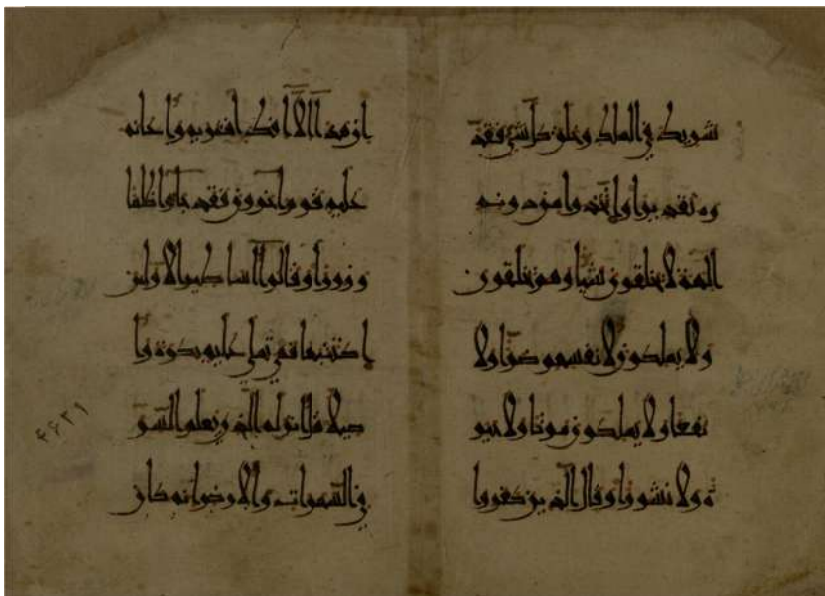 شريك في الملك وخلق كل شئ فقد
ره تقديرا واتخذوا من دونه
آلهة لا يخلقون شيا وهم يخلقون
ولا يملكون لانفسهم ضرا ولا
نفعا ولا يملكون موتا ولا حيو
ة ولا نشورا وقال الذين كفروا
ان هذا الا افك افتريه واعانه
عليه قوم اخرون فقد جاو ظلما
وزورا وقالوا اساطير الاولين
اكتتبها فهي تملى عليه بكرة وا
صيلا قل انزله الذي يعلم السر
في السموات والارض انه كان
۴۶۳۱